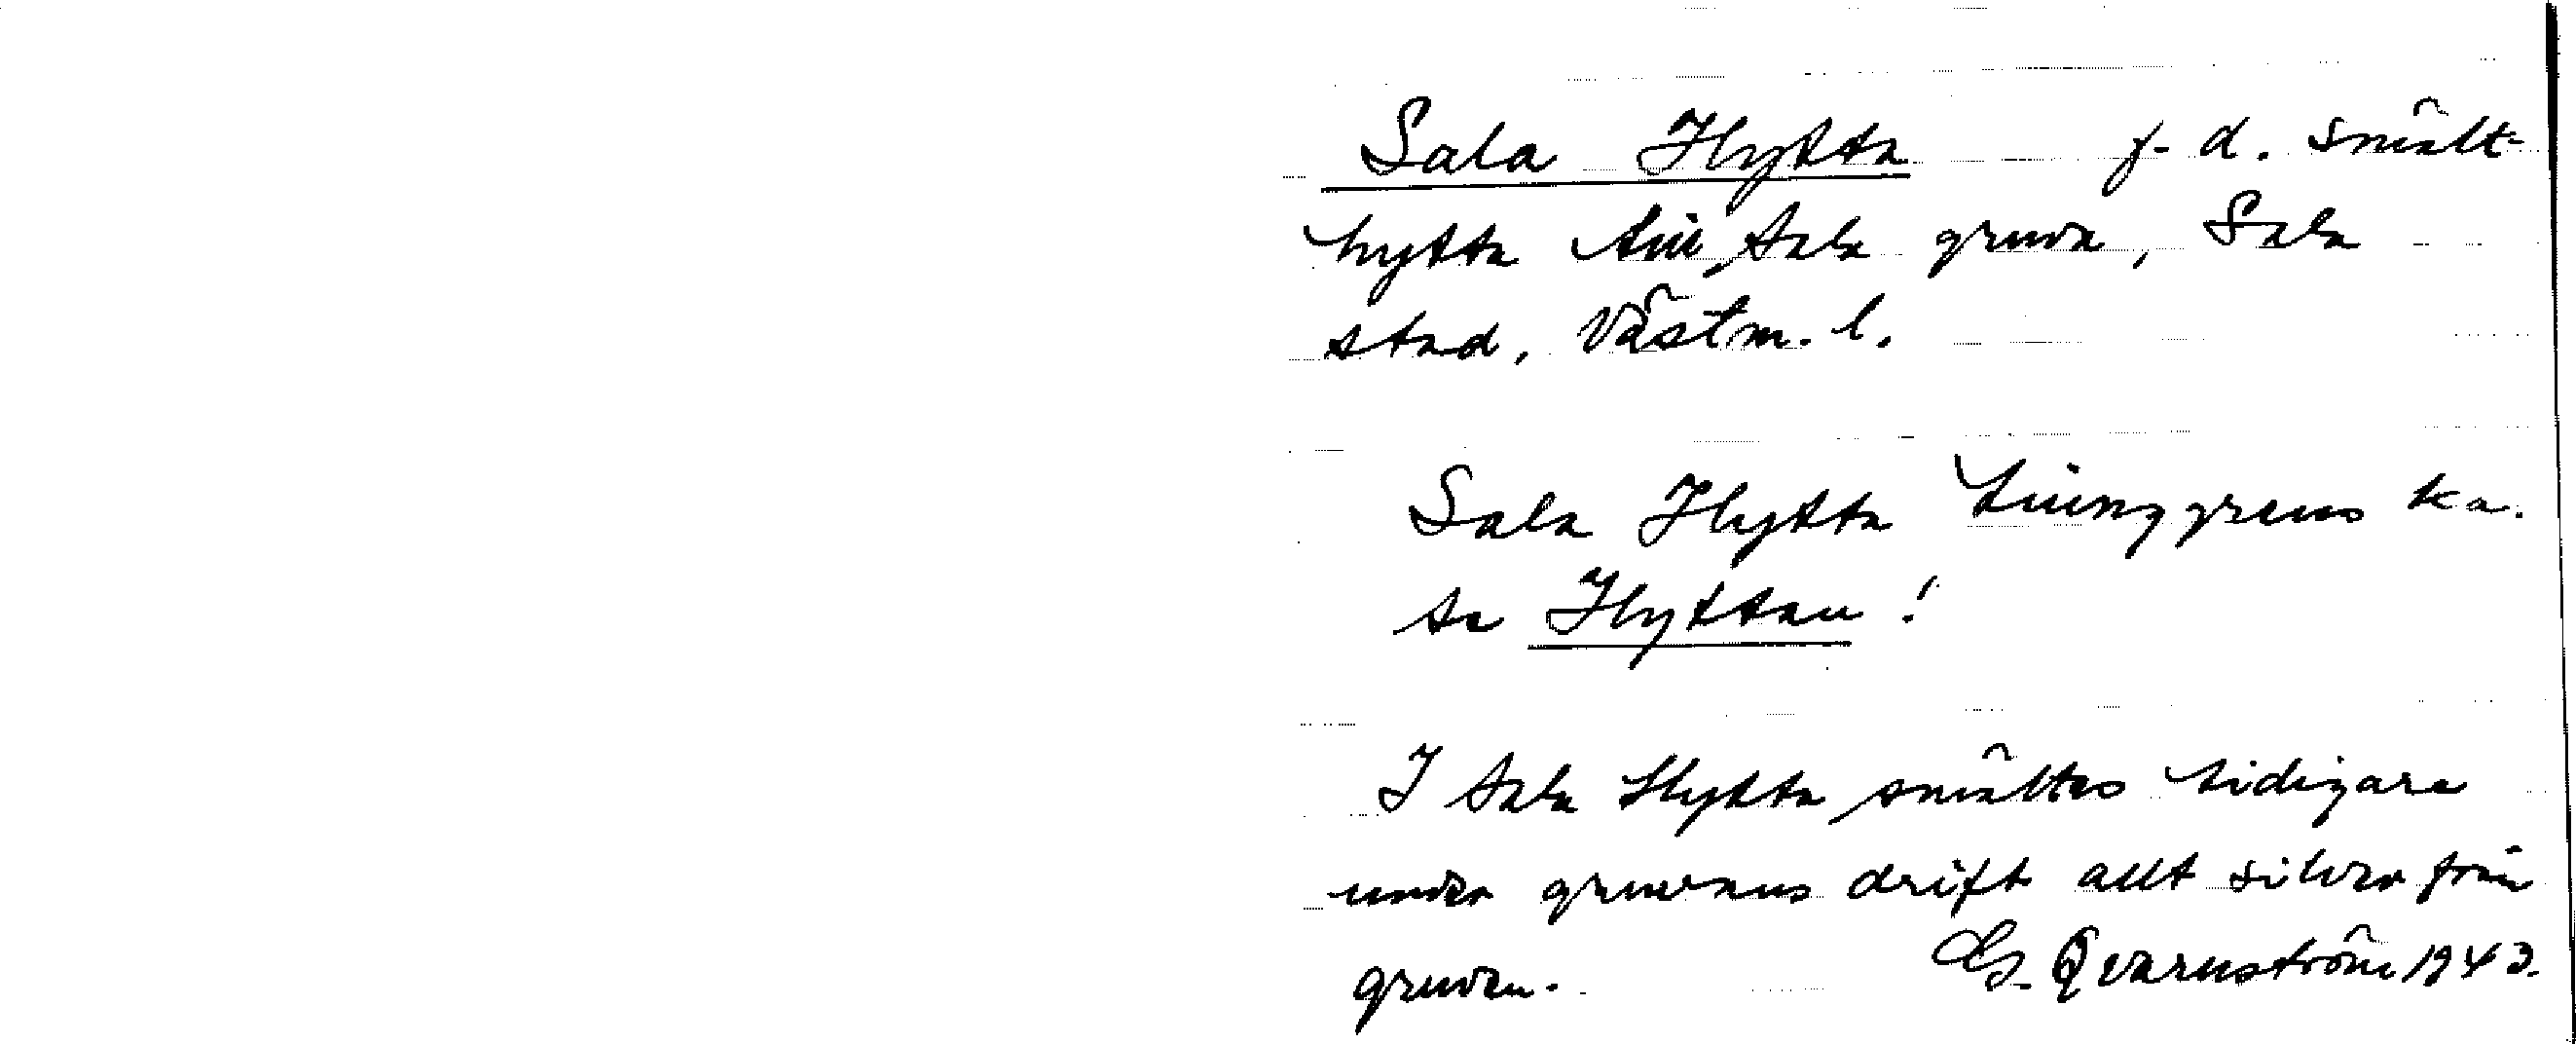 Sala Hytta f. d. smält-
hytta till Sala gruva, Sala
stad, Västm. l.
Sala Hytta Ljunggrens ka.
ta Hyttan!
I Sala Hytta smältes tidigare
under gruvans drift allt silver från
gruvan. G. Qvarnström 1943.